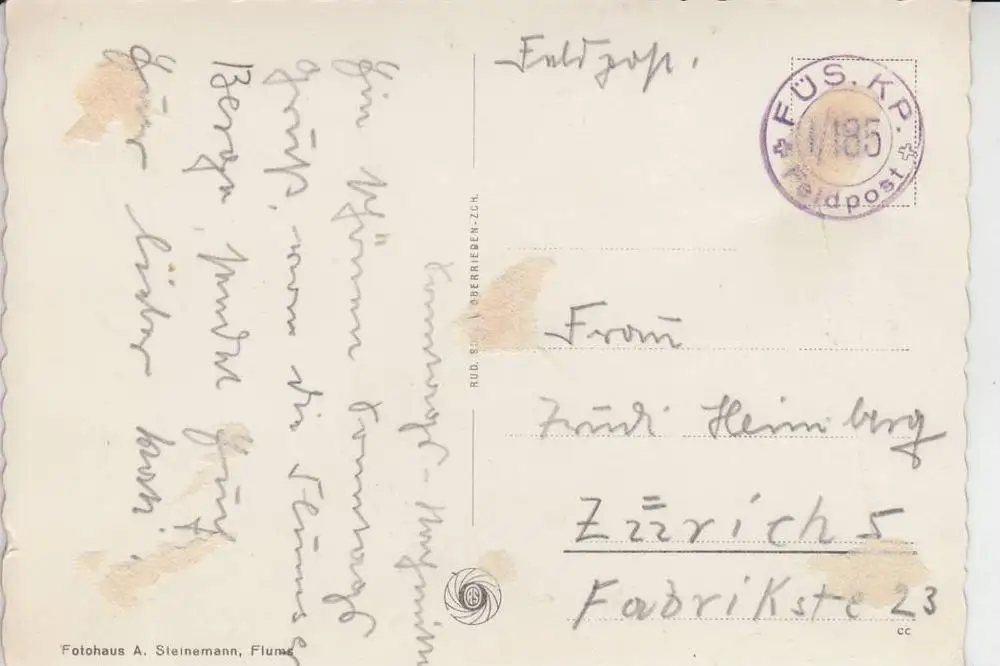 Feldpost.
FÜS. KP.
/185
Feldpost
Frau
Trudi Heimberg
Zürich 5
Fabrikstr 23
Sonntag - Nachmitt
Ein schönen Sonntags
Gruss, von die Flumser
Berge, sendet Euch
Euer lieber
RUD. OBERRIEDEN-ZCH.
Fotohaus A. Steinemann, Flums
CC